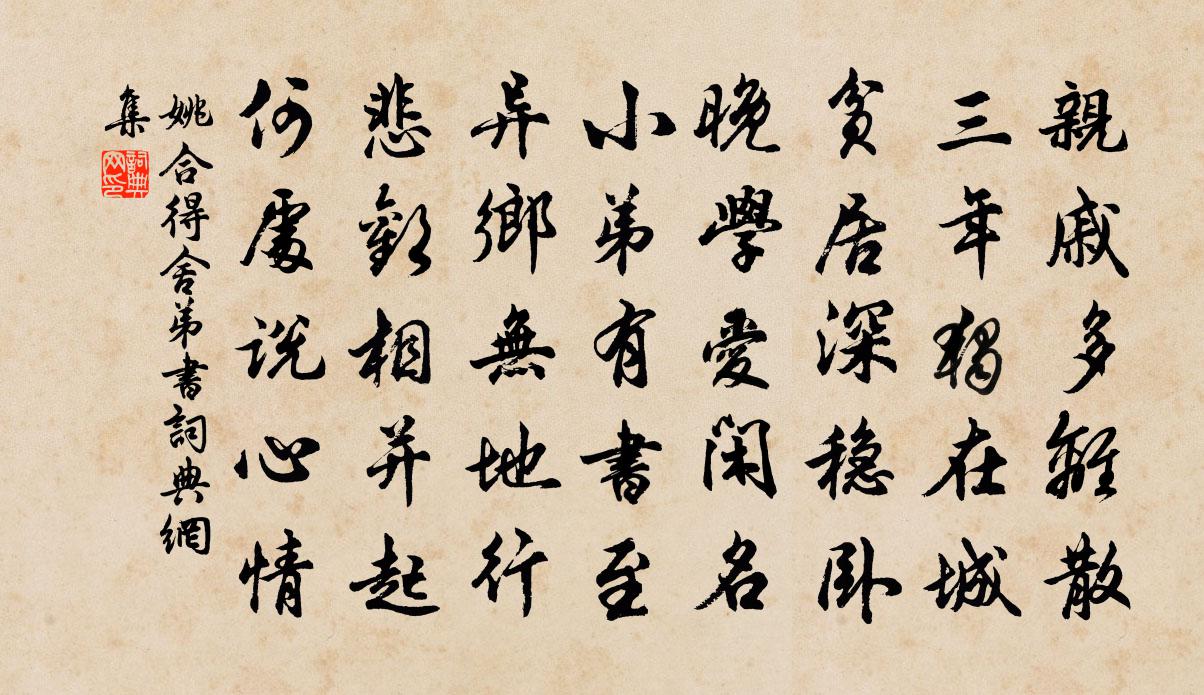 親戚多離散
三年獨在城
貧居深穩卧
晚學愛閑名
小弟有書至
异鄉無地行
悲歡相并起
何處説心情
姚合得舍弟書詞典網
集
詞典網印